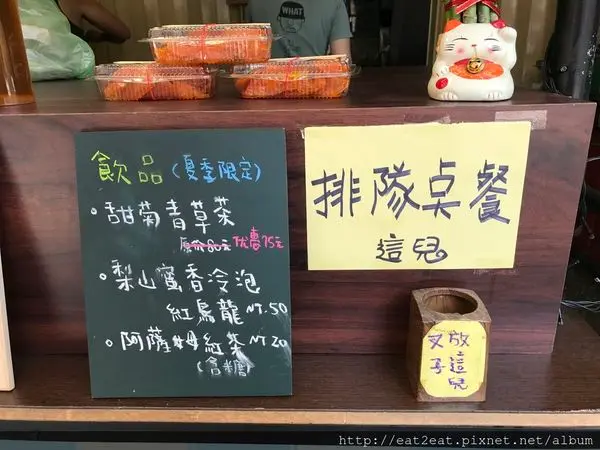 WHAT
飲品（夏季限定）
•甜菊青草茶
原价80元 优惠75元
•梨山蜜香冷泡
紅烏龍 NT.50
•阿薩姆紅茶 NT 20
(含糖)
排隊桌餐
這兒
叉子
放這兒
http://eat2eat.pixnet.net/album